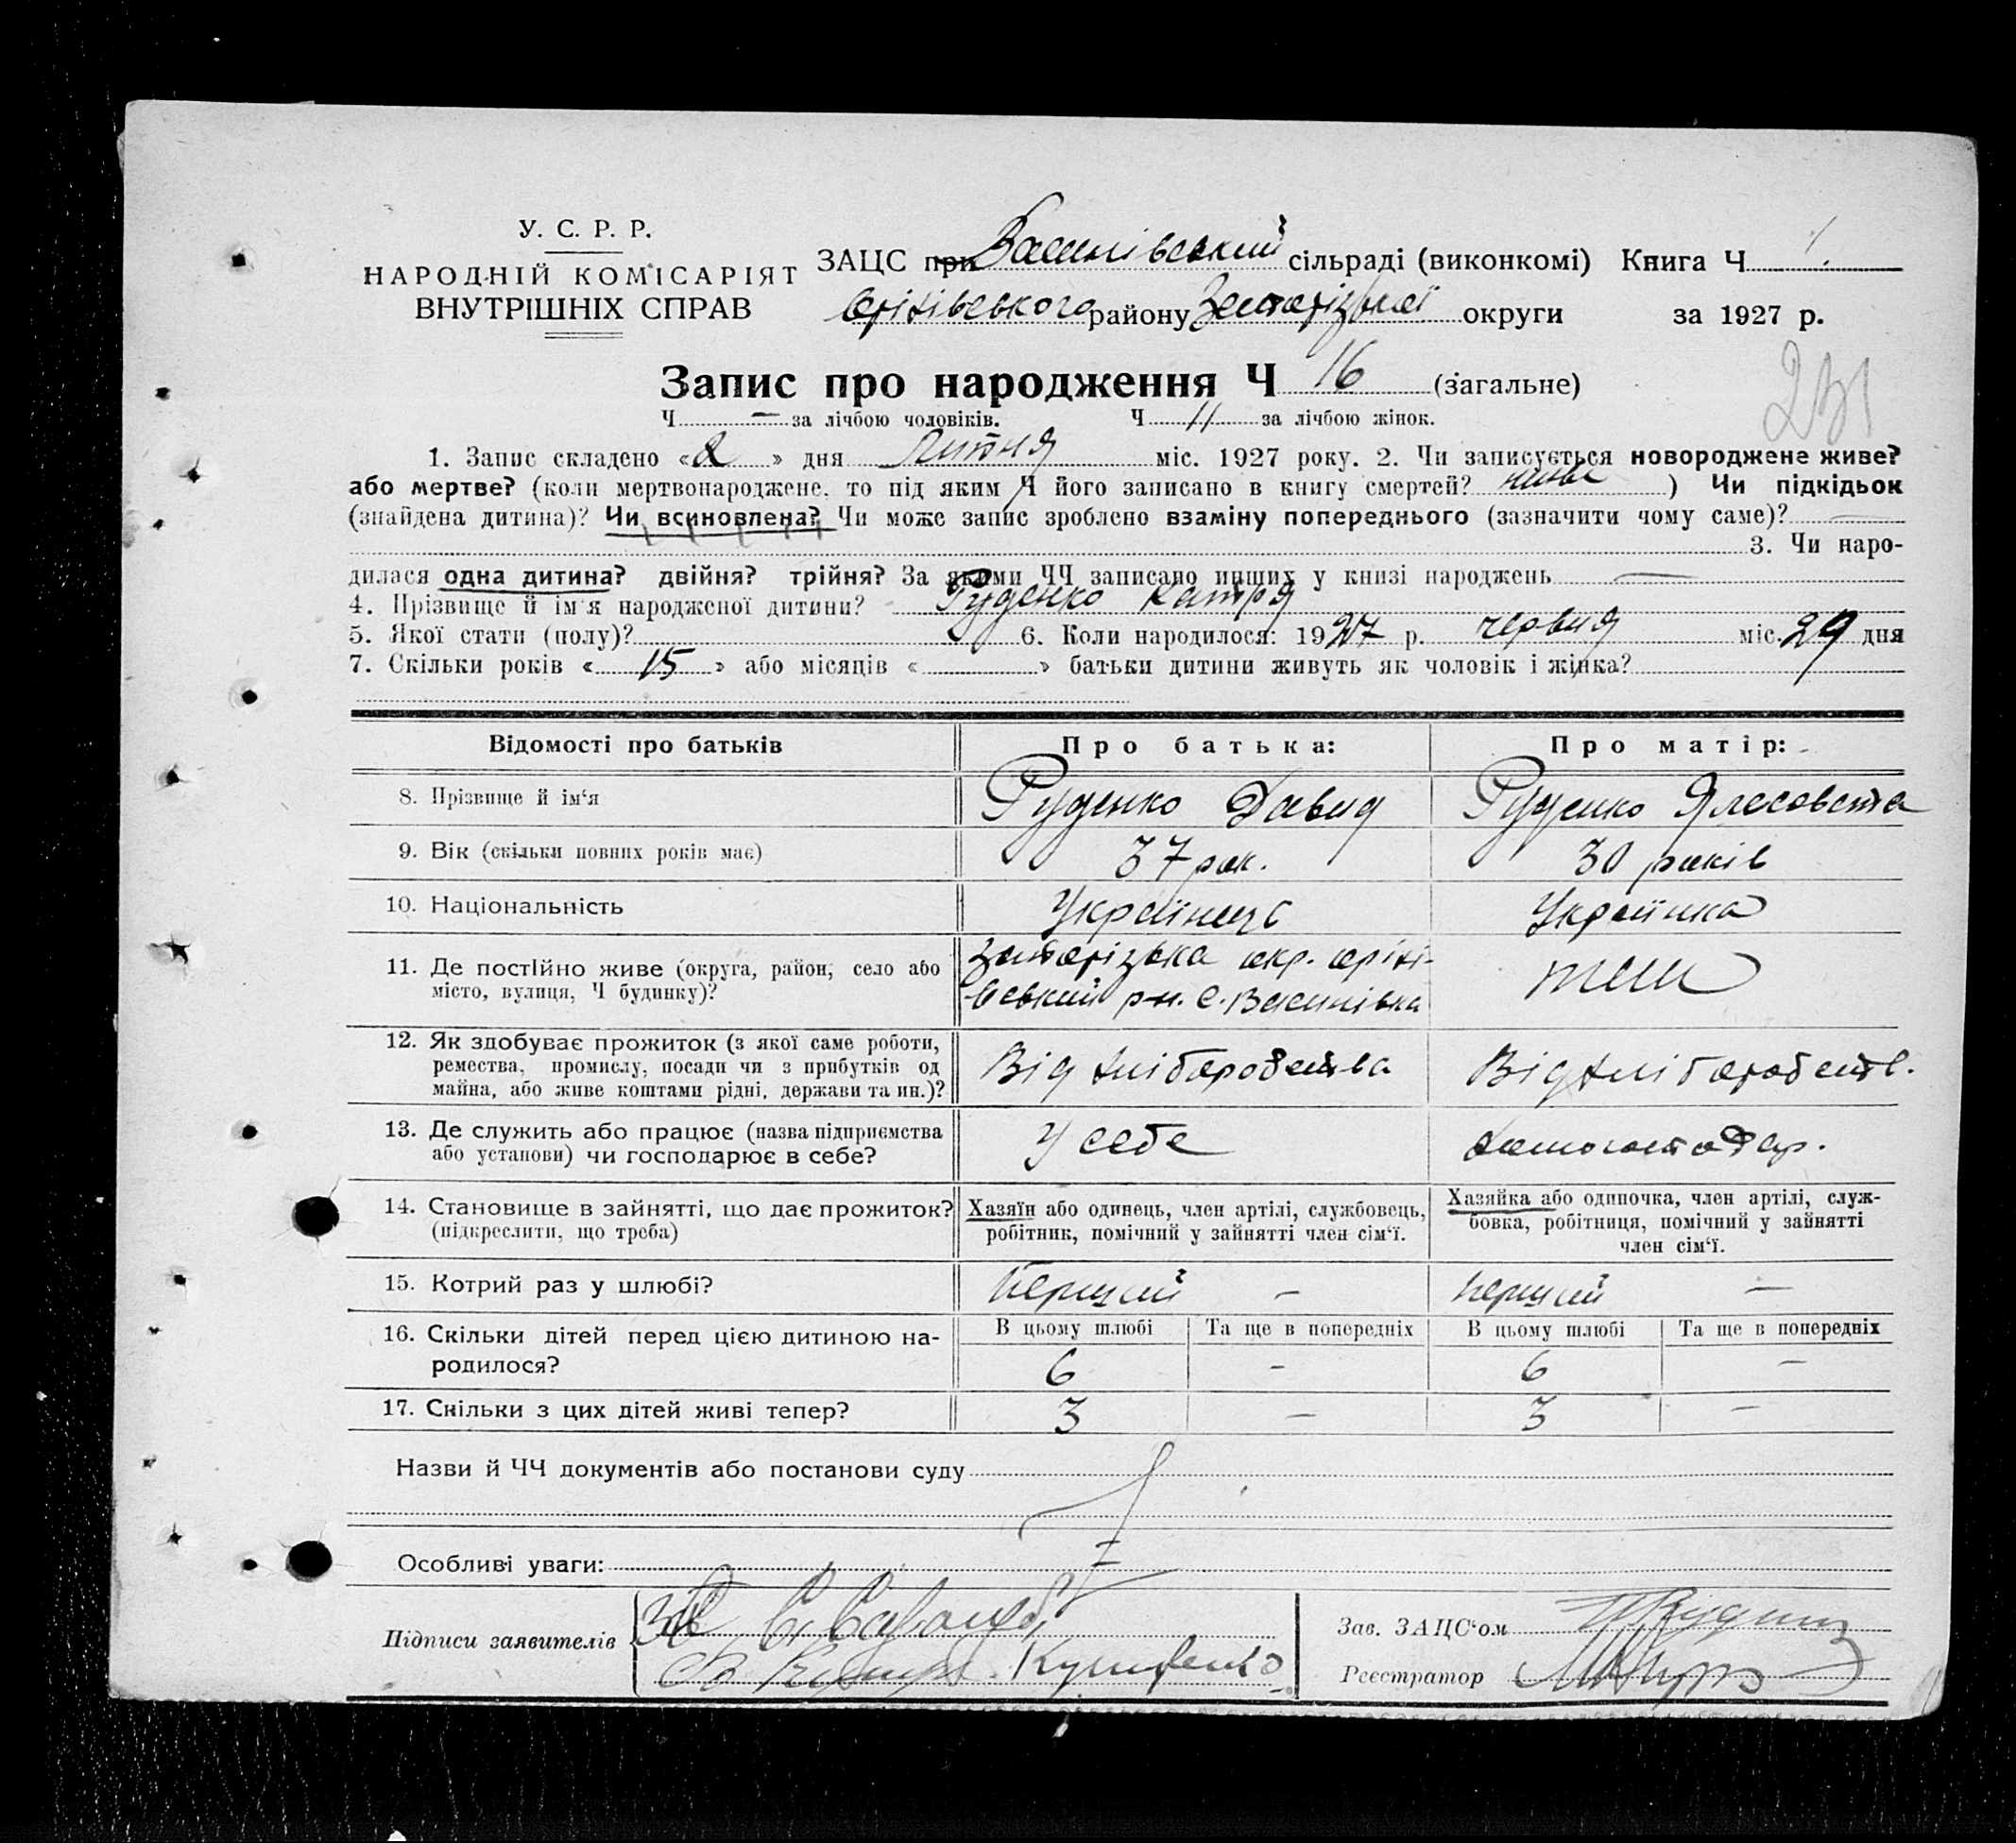 У. С. Р. Р.
НАРОДНІЙ КОМІСАРІЯТ
ВНУТРІШНІХ СПРАВ
ЗАЦС при Василівський сільраді (виконкомі) Книга Ч 1.
Оріхівського району Запорізької округи за 1927 р.
Запис про народження Ч 16 (загальне)
231
Ч — за лічбою чоловіків. Ч 11 за лічбою жінок.
1. Запис складено «2» дня Липня міс. 1927 року. 2. Чи записується новороджене живе?
або мертве? (коли мертвонароджене, то під яким Ч його записано в книгу смертей? живе) Чи підкідьок
(знайдена дитина)? Чи всиновлена? Чи може запис зроблено взаміну попереднього (зазначити чому саме)? —
3. Чи наро-
дилася одна дитина? двійня? трійня? За якими ЧЧ записано инших у книзі народжень —
4. Прізвище й ім'я народженої дитини? Руденко Катря
5. Якої стати (полу)? 6. Коли народилося: 1927 р. червня міс. 29 дня
7. Скільки років «15» або місяців « » батьки дитини живуть як чоловік і жінка?
Відомості про батьків Про батька: Про матір:
8. Прізвище й ім‘я Руденко Давид Руденко Ялесовета
9. Вік (скільки повних років має) 37 рок. 30 років
10. Національність Українець Українка
11. Де постійно живе (округа, район, село або місто, вулиця, Ч будинку)? Запорізька окр. оріхі-
вський р-н. с. Василівка теж
12. Як здобуває прожиток (з якої саме роботи,
ремества, промислу, посади чи з прибутків од
майна, або живе коштами рідні, держави та ин.)? Від хліборобства Від хліборобств.
13. Де служить або працює (назва підприємства
або установи) чи господарює в себе? У себе домогосподар.
14. Становище в зайнятті, що дає прожиток?
(підкреслити, що треба)
Хазяїн або одинець, член артілі, службовець,
робітник, помічний у зайнятті член сім‘ї.
Хазяйка або одиночка, член артілі, служ-
бовка, робітниця, помічний у зайнятті
член сім‘ї.
15. Котрий раз у шлюбі? Перший — перший —
16. Скільки дітей перед цією дитиною на-
родилося?
В цьому шлюбі Та ще в попередніх В цьому шлюбі Та ще в попередніх
6 — 6 —
17. Скільки з цих дітей живі тепер? 3 — 3 —
Назви й ЧЧ документів або постанови суду
Особливі уваги:
Підписи заявителів
Зав. ЗАЦС‘ом
Реєстратор